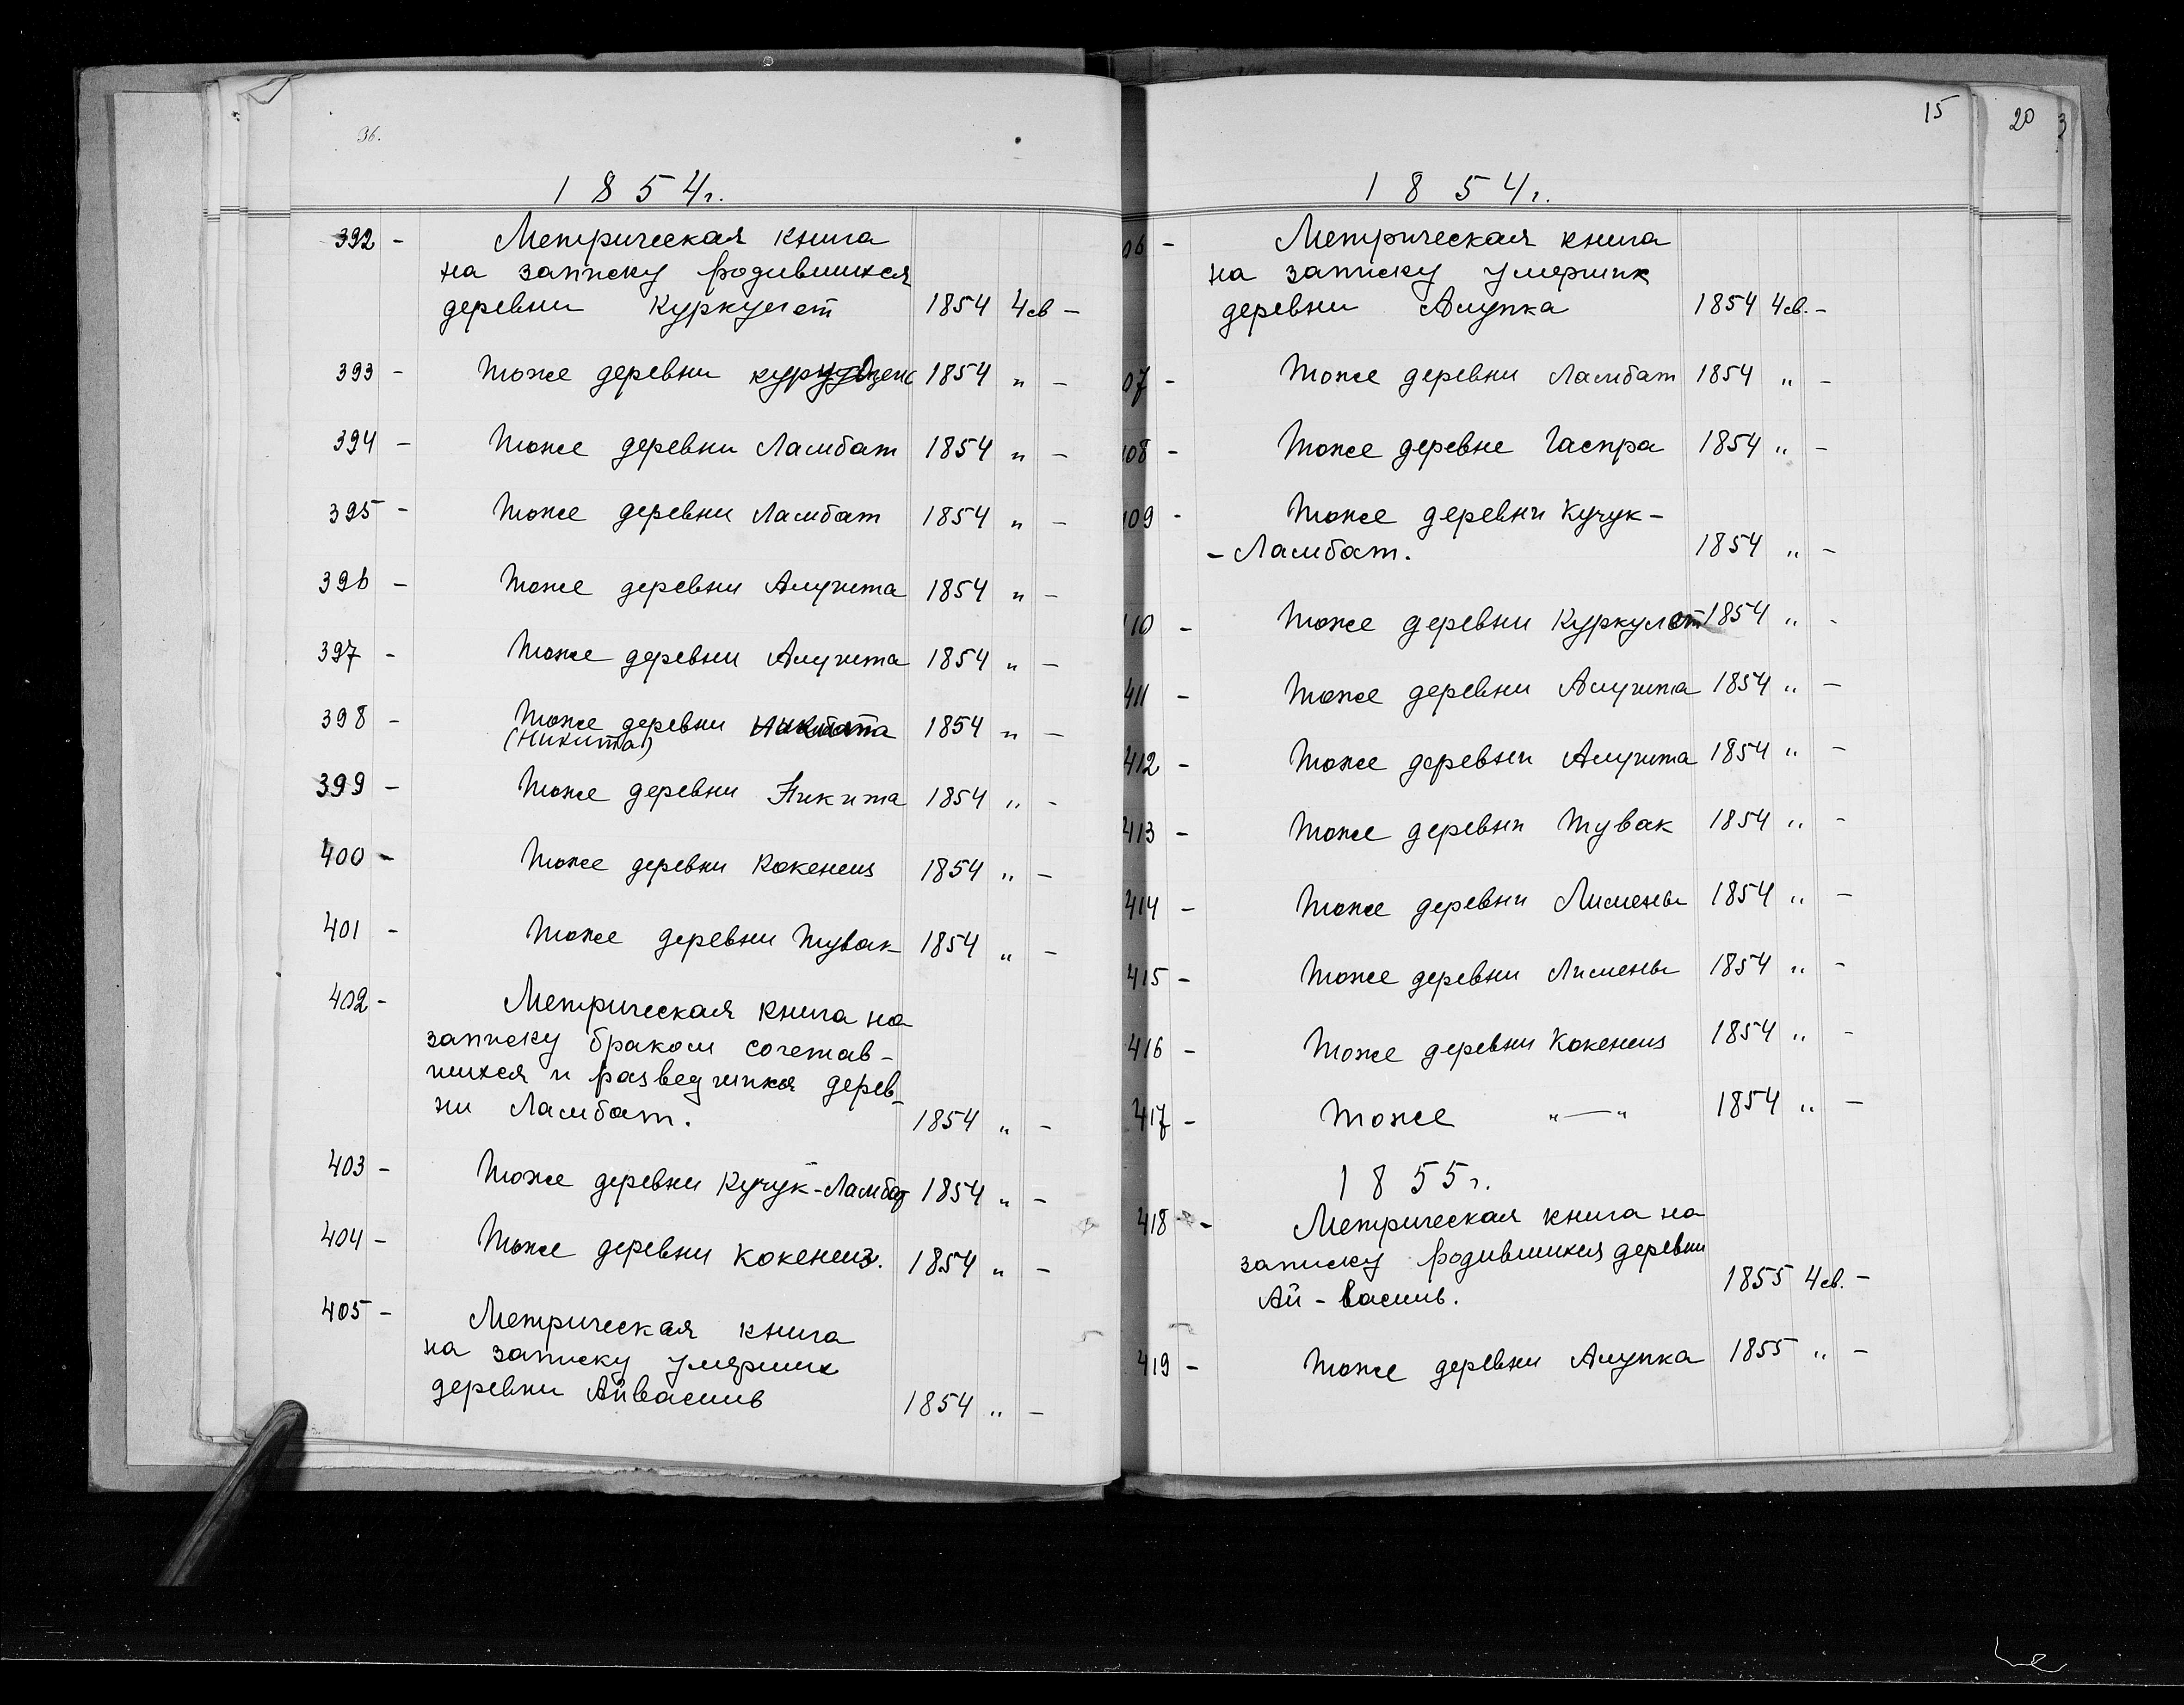 36.
1854г.
392 - Метрическая книга
на записку родившихся
деревни Куркулет 1854 4св -
393 - Тоже деревни 1854 " -
394 - Тоже деревни Ламбат 1854 " -
395 - Тоже деревни Ламбат 1854 " -
396 - Тоже деревни Алушта 1854 " -
397 - Тоже деревни Алушта 1854 " -
398 - Тоже деревни 1854 " -
(Никита)
399 - Тоже деревни Никита 1854 " -
400 - Тоже деревни Кокенеиз 1854 " -
401 - Тоже деревни Тувак 1854 " -
402 - Метрическая книга на
записку браком сочетав-
шихся и разведшихся дерев-
ни Ламбат. 1854 " -
403 - Тоже деревни Кучук-Ламбат 1854 " -
404 - Тоже деревни Кокенеиз. 1854 " -
405 - Метрическая книга
на записку умерших
деревни Айвасиль 1854 " -
15
20
3
1854г.
06 - Метрическая книга
на записку умерших
деревни Алупка 1854 4св. -
07 - Тоже деревни Ламбат 1854 " -
08 - Тоже деревне Гаспра 1854 " -
09 - Тоже деревни Кучук-
-Ламбат. 1854 " -
10 - Тоже деревни Куркулет 1854 " -
411 - Тоже деревни Алушта 1854 " -
412 - Тоже деревни Алушта 1854 " -
413 - Тоже деревни Тувак 1854 " -
414 - Тоже деревни Лимены 1854 " -
415 - Тоже деревни Лимены 1854 " -
416 - Тоже деревни Кокенеиз 1854 " -
417 - Тоже "—" 1854 " -
1855г.
418 - Метрическая книга на
записку родившихся деревни
Ай-Василь. 1855 4св. -
419 - Тоже деревни Алупка 1855 " -